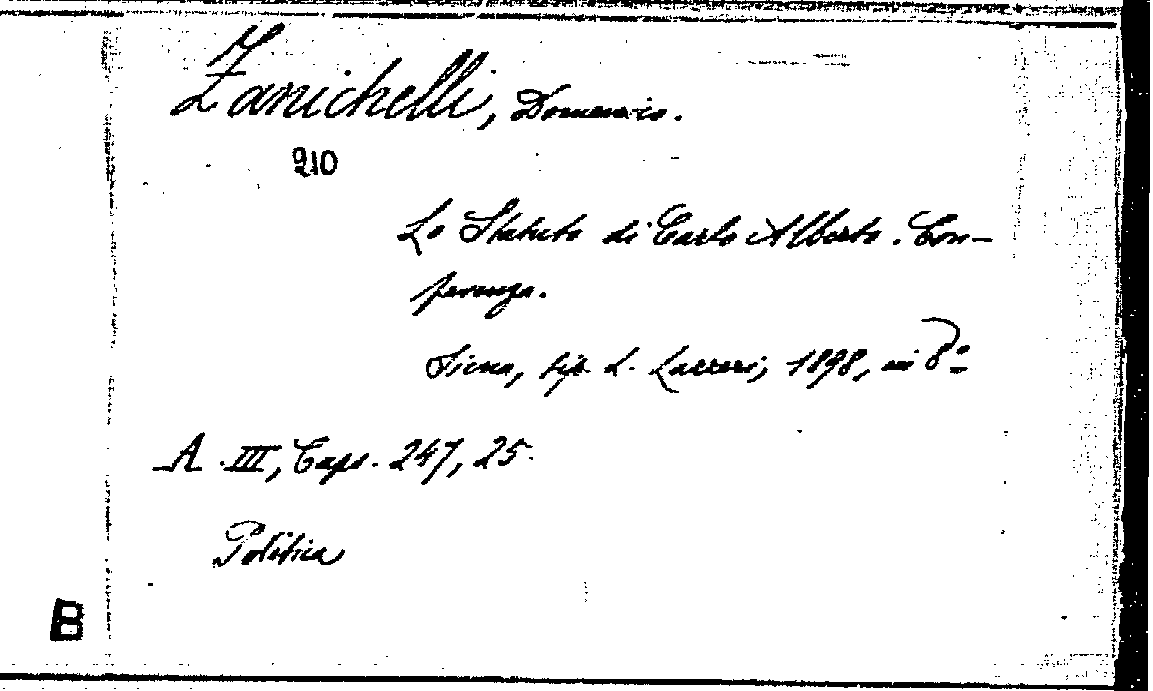 Zanichelli, Domenico.
210
Lo Statuto di Carlo Alberto. Con-
ferenza.
Siena, tip. L. Lazzeri, 1898, in 8º
A. III, Caps. 247, 25.
Politica
B